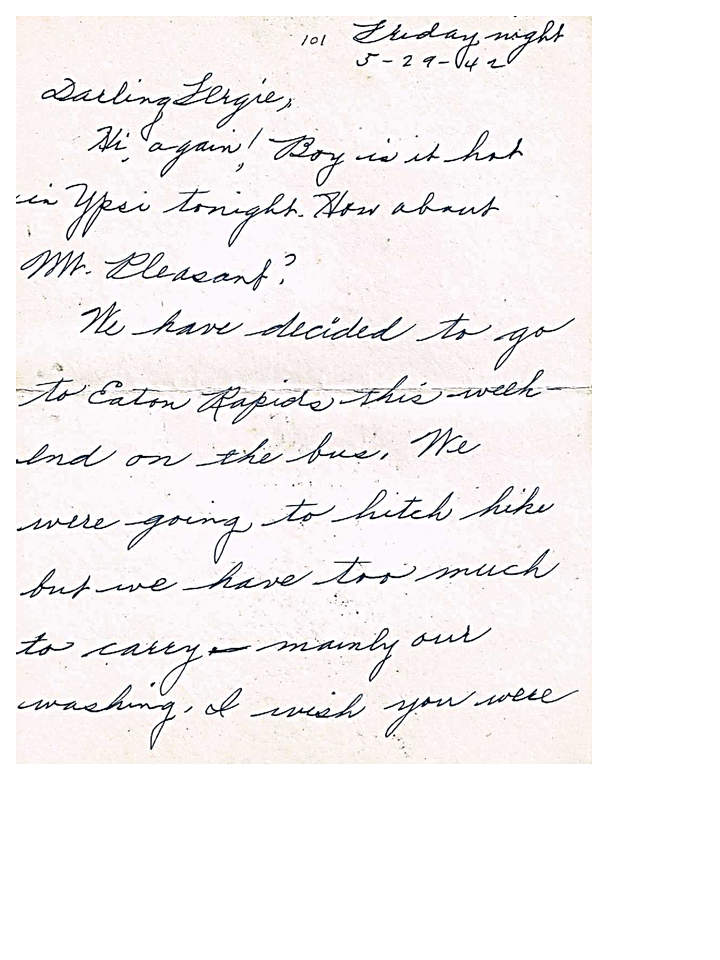 101 Friday night
5-29-42
Darling Fergie,
Hi, again! Boy is it hot
in Ypsi tonight. How about
Mt. Pleasant?
We have decided to go
to Eaton Rapids this week-
end on the bus. We
were going to hitch hike
but we have too much
to carry - mainly our
washing. I wish you were